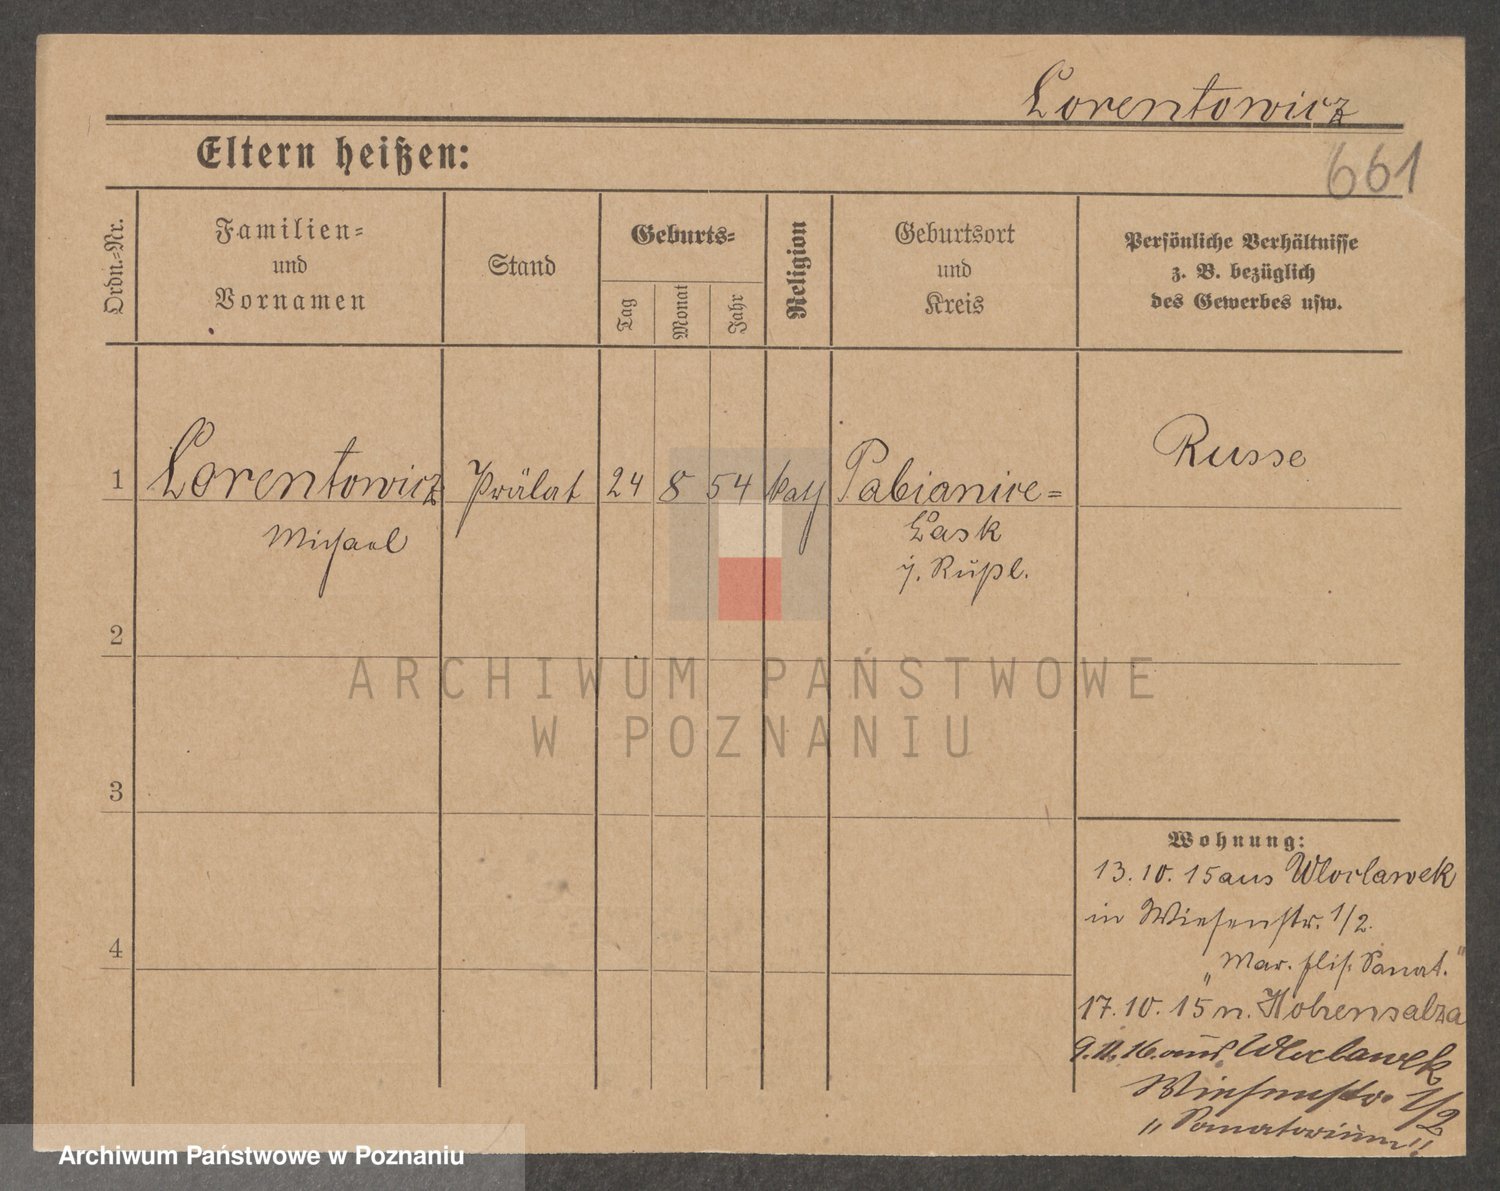 Lorentowicz
Eltern heißen:
661
Ordn.-Nr.
Familien-
und
Vornamen
Stand
Geburts-
Tag
Monat
Jahr
Religion
Geburtsort
und
Kreis
Persönliche Verhältnisse
z. B. bezüglich
des Gewerbes usw.
1
Lorentowicz
Michael
Prälat
24
8
54
kath
Pabianice=
Lask
i. Rußl.
Russe
2
3
4
Wohnung:
13.10.15 aus Wloclawek
in Wiesenstr. 1/2.
„Mar. Sanat."
17.10.15 n. Hohensalza
9.11.16. aus Wloclawek
Wiesenstr. 1/2
„Sanatorium"
ARCHIWUM PAŃSTWOWE
W POZNANIU
Archiwum Państwowe w Poznaniu